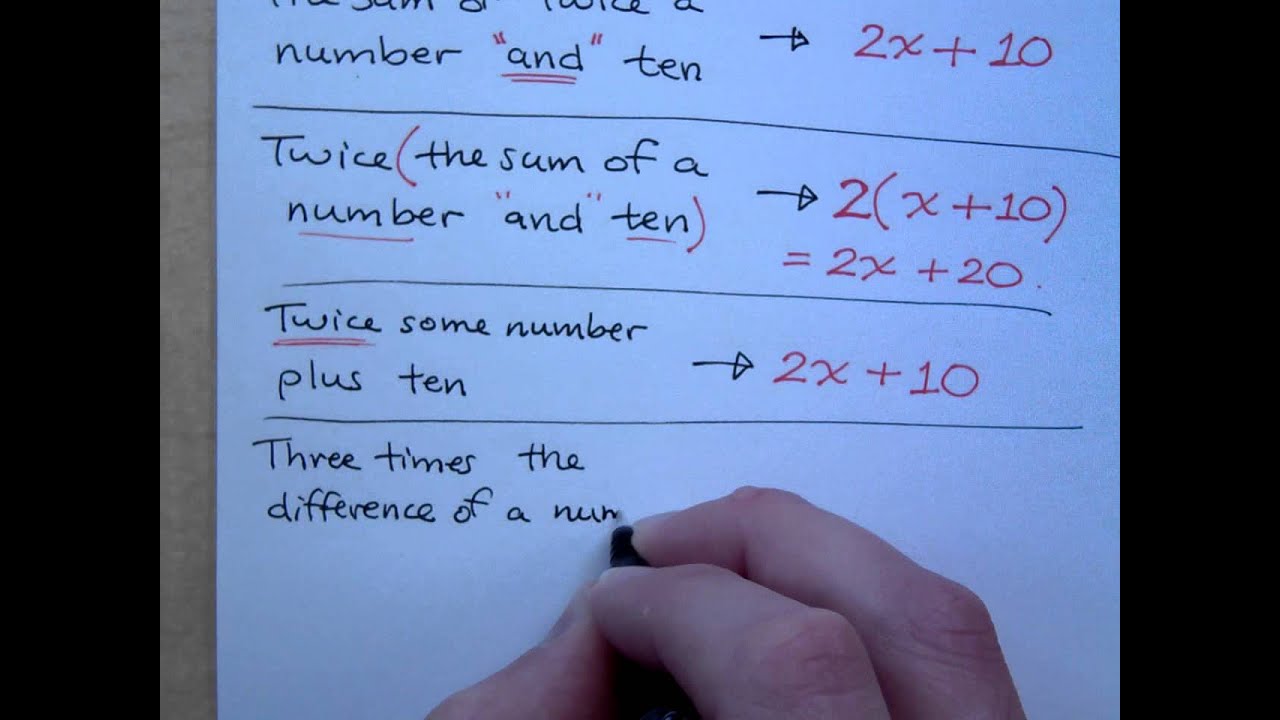 The sum of twice a
number "and" ten → 2x + 10
Twice (the sum of a
number "and" ten) → 2(x + 10)
= 2x + 20.
Twice some number
plus ten → 2x + 10
Three times the
difference of a num